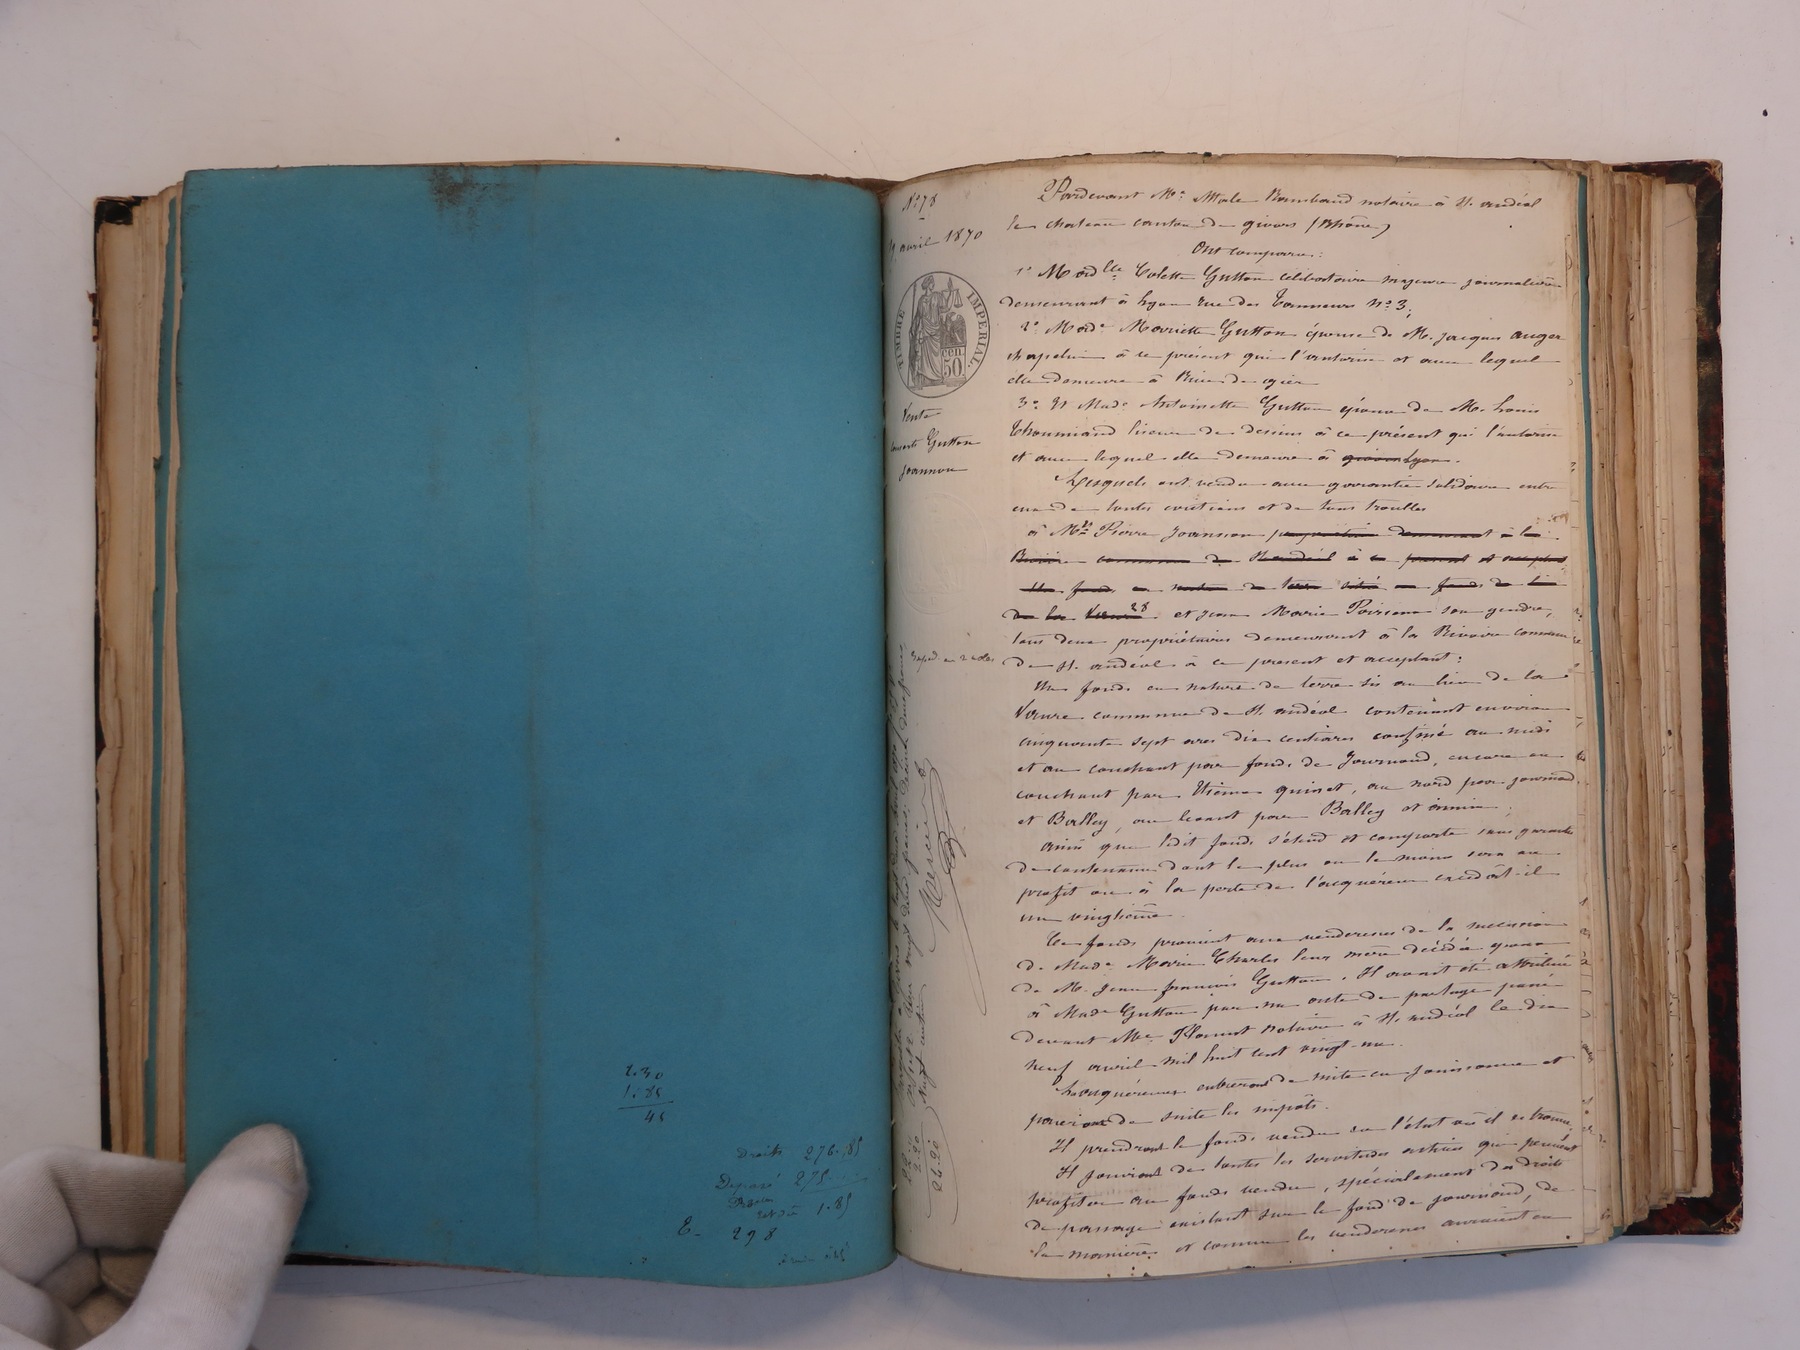 2.30
1.85
45
Droits 276.85
Déposé 275
Reste dû 1.85
E. 298
N° 78
9 avril 1870
TIMBRE IMPERIAL.
50 cen.
Vente
Gutton
Joannon
Exped. en 2 rôles
Mercier
22.
2.20
24.20
Pardevant Me. Rambaud notaire à St. andéol
le chateau canton de givors (Rhône)
Ont comparu:
1° Madlle Colette Gutton célibataire majeure journalière
demeurant à Lyon rue des Tanneurs n° 3;
2° Made Mariette Gutton épouse de M. jacques auger
chapelier à ce présent qui l'autorise et avec lequel
elle demeure à Rive de gier
3° Et Made Antoinette Gutton épouse de M. Louis
Thoumiand liseur de dessins à ce présent qui l'autorise
et avec lequel elle demeure à givors Lyon.
Lesquels ont vendu avec garantie solidaire entre
eux de toutes évictions et de tous troubles
à Mrs Pierre Joannon propriétaire demeurant à la
commune de St andéol à ce présent et acceptant
Un fonds en nature de terre situé au fonds de la
de la et jean Marie Poizieux son gendre,
tous deux propriétaires demeurant à la Rivoire commune
de St. andéol à ce présent et acceptant:
Un fonds en nature de terre sis au lieu de la
Vaure commune de St. andéol contenant environ
cinquante sept ares dix centiares confiné au midi
et au couchant par fonds de Journoud, encore au
couchant par Etienne quinet, au nord par journoud
et Balley, au levant par Balley et
ainsi que ledit fonds s'étend et comporte sans garantie
de contenance dont le plus ou le moins sera au
profit ou à la perte de l'acquéreur excédât-il
un vingtième.
Ce fonds provient aux venderesses de la succession
de Made Marie Charles leur mère décédée épouse
de M. Jean françois Gutton. Il avait été attribué
à Made Gutton par un acte de partage passé
devant Me Florent notaire à St. andéol le dix
neuf avril mil huit cent vingt-un.
Les acquéreurs entreront de suite en jouissance et
paieront de suite les impôts.
Il prendront le fonds vendu en l'état où il se trouve.
Il jouiront de toutes les servitudes actives qui peuvent
profiter au fonds vendu, spécialement des droits
de passage existant sur le fond de journoud, de
la manière et comme les venderesses auraient eu